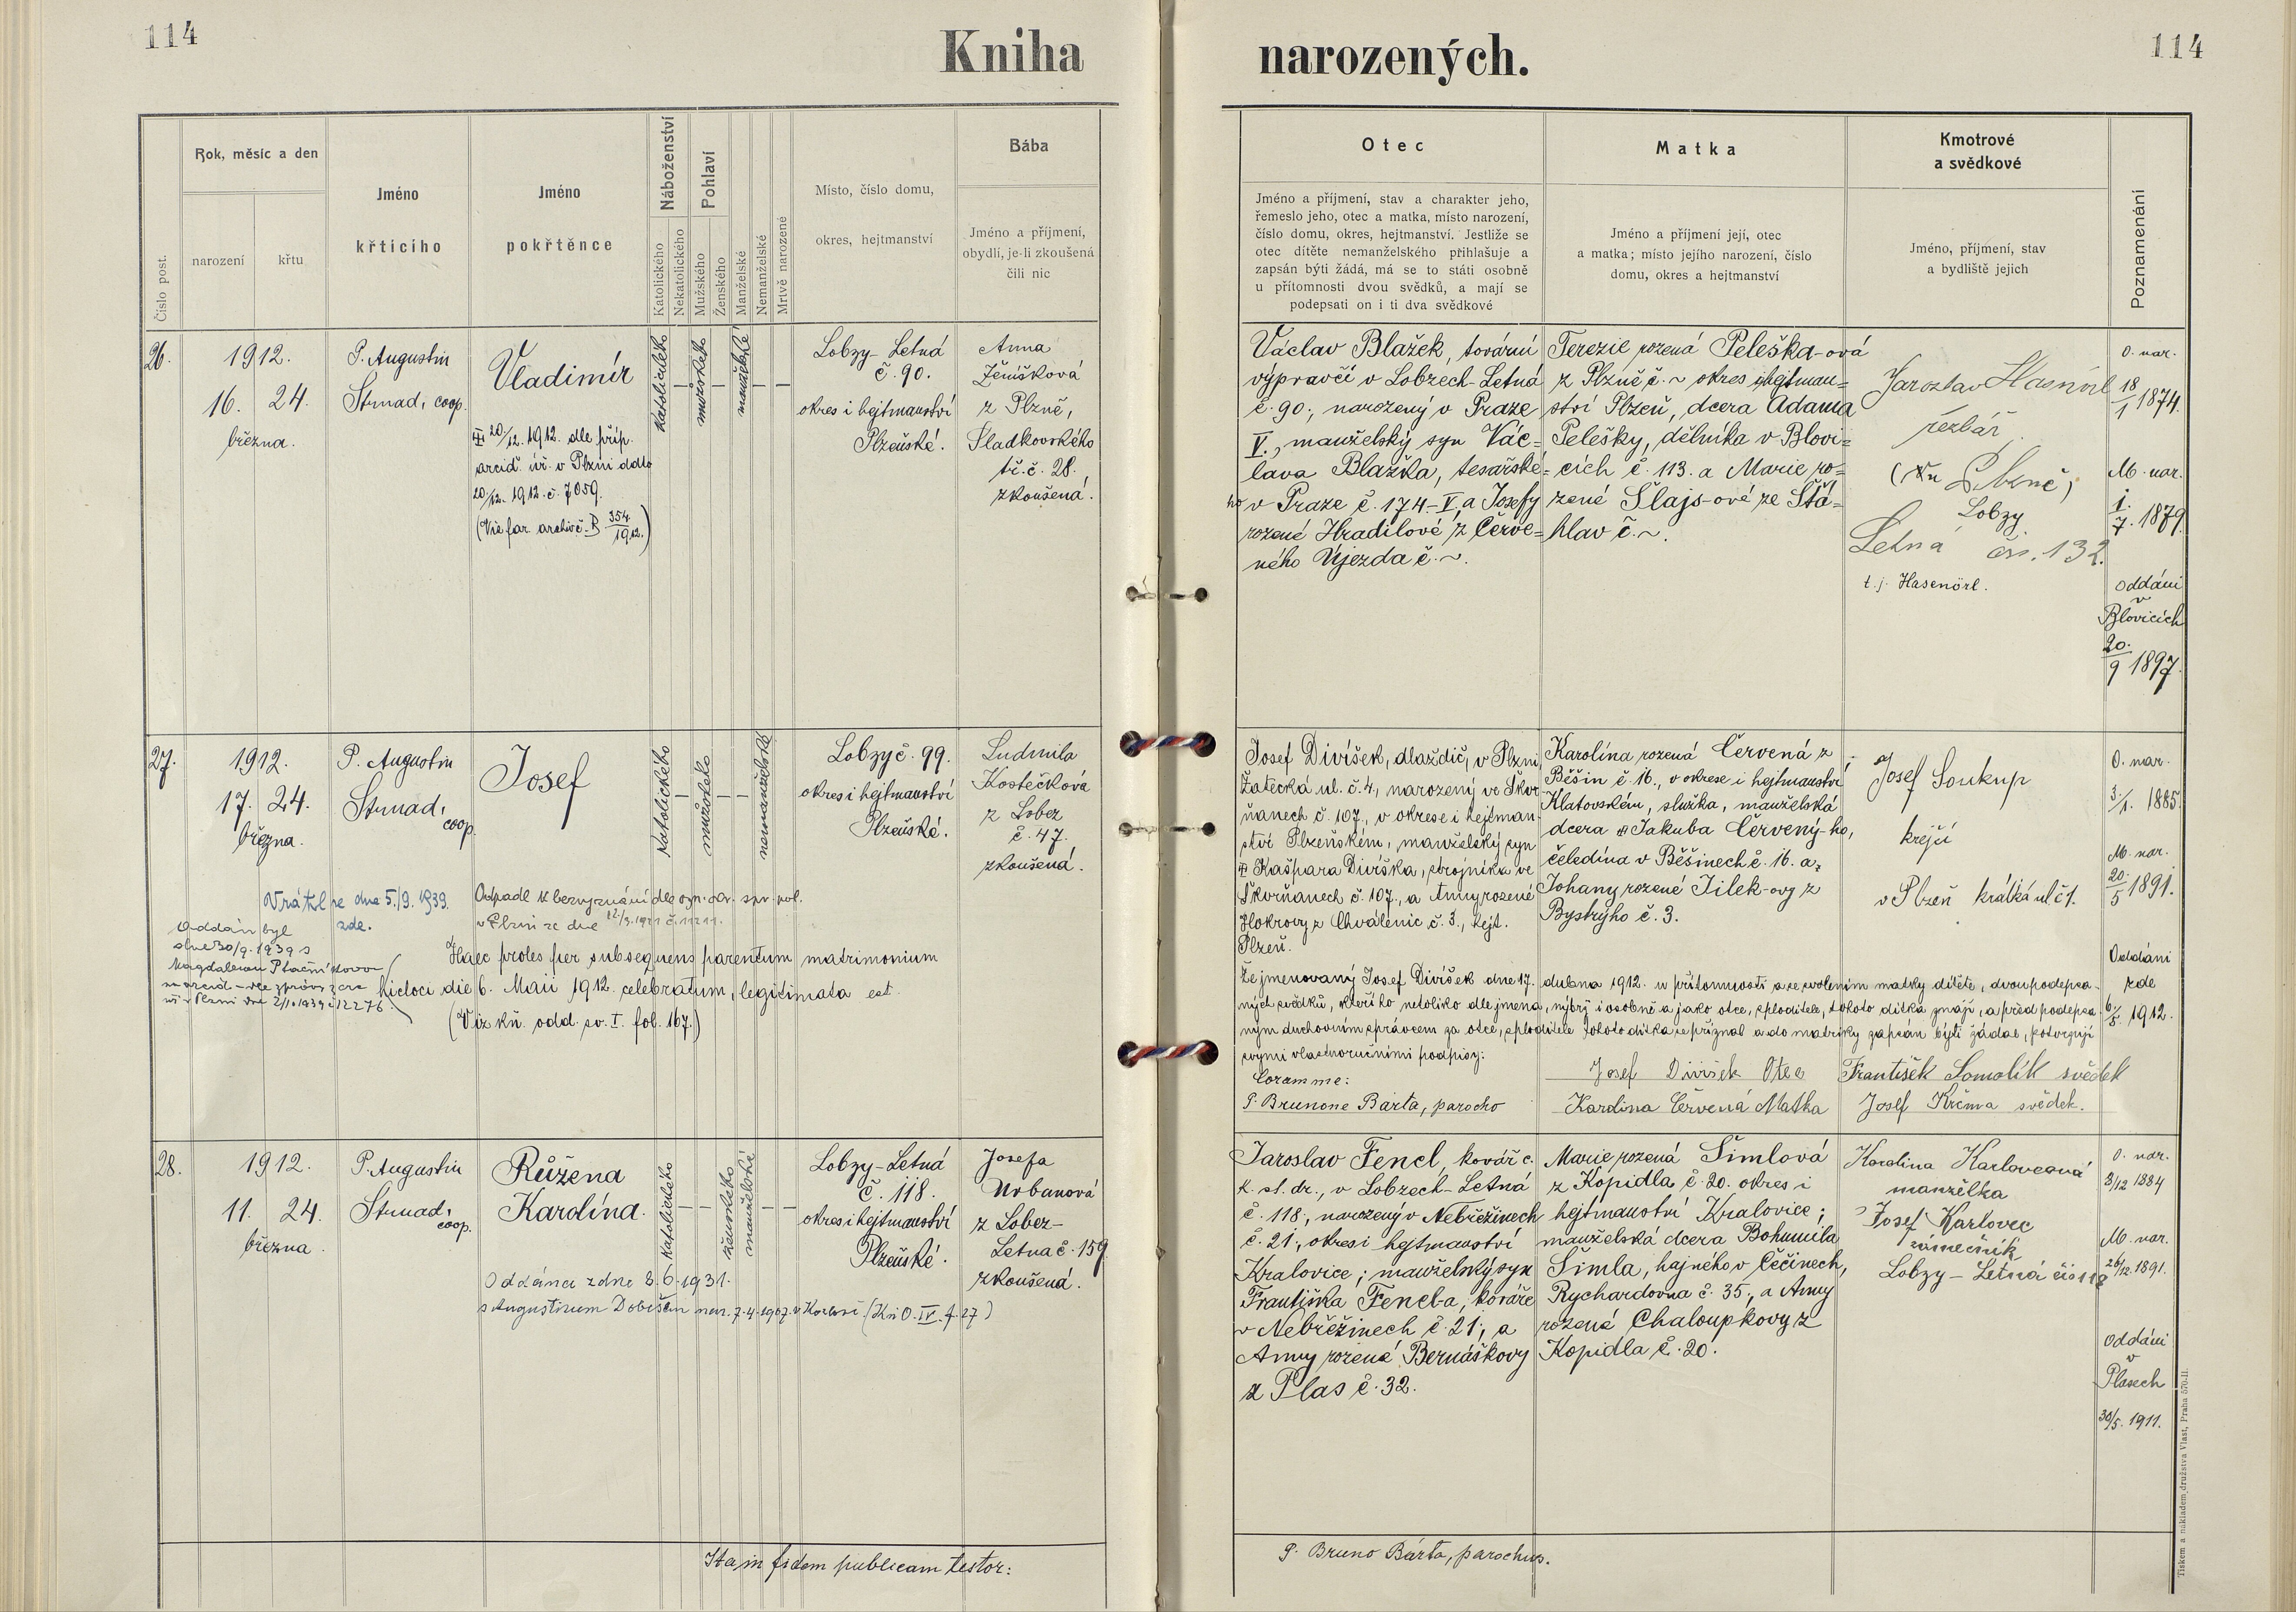 114
Kniha
narozených.
114
Číslo post.
Rok, měsíc a den
narození
křtu
Jméno
křticího
Jméno
pokřtěnce
Náboženství
Katolického
Nekatolického
Pohlaví
Mužského
Ženského
Manželské
Nemanželské
Mrtvě narozené
Místo, číslo domu,
okres, hejtmanství
Bába
Jméno a příjmení,
obydlí, je-li zkoušená
čili nic
Otec
Jméno a příjmení, stav a charakter jeho,
řemeslo jeho, otec a matka, místo narození,
číslo domu, okres, hejtmanství. Jestliže se
otec dítěte nemanželského přihlašuje a
zapsán býti žádá, má se to státi osobně
u přítomnosti dvou svědků, a mají se
podepsati on i ti dva svědkové
Matka
Jméno a příjmení její, otec
a matka; místo jejího narození, číslo
domu, okres a hejtmanství
Kmotrové
a svědkové
Jméno, příjmení, stav
a bydliště jejich
Poznamenání
26.
1912.
16. 24.
března.
P. Augustin
Strnad, coop.
Vladimír
20/12. 1912. dle příp.
arcid. úř. v Plzni ddto
20/12. 1912. č. 7059.
(Viz far. archiv č. B 354/1912.)
katolického
mužského
manželské
Lobzy-Letná
č. 90.
okres i hejtmanství
Plzeňské.
Anna
Ženíšková
z Plzně,
Sladkovského
tř. č. 28.
zkoušená.
Václav Blažek, tovární
výpravčí v Lobzech-Letná
č. 90., narozený v Praze
V., manželský syn Vác=
lava Blažka, tesařské=
ho v Praze č. 174-V, a Josefy
rozené Hradilové z Červe=
ného Újezda č. ~.
Terezie rozená Peleška-ová
z Plzně č. ~ okres i hejtman=
ství Plzeň, dcera Adama
Pelešky, dělníka v Blovi=
cích č. 113. a Marie ro=
zené Šlajs-ové ze Šťá=
hlav č. ~.
Jaroslav Hasenörl
řezbář
Lobzy
Letná čís. 132.
t. j. Hasenörl.
O. nar.
18/1 1874.
M. nar.
1./7. 1879.
Oddáni
v
Blovicích
20./9 1897.
27.
1912.
17. 24.
března.
P. Augustin
Strnad,
coop.
Josef
katolického
mužského
nemanželské
Lobzy č. 99.
okres i hejtmanství
Plzeňské.
Ludmila
Kostečková
z Lobez
č. 47.
zkoušená.
Vrátil se dne 5./9. 1939.
zde.
Odpadl k bezvyznání dle ozn. okr. spr. pol.
v Plzni ze dne
Oddán byl
dne 30/9. 1939 s
Magdalenou Ptačníkovou
Haec proles per subsequens parentum matrimonium
hicloci die 6. Maii 1912. celebratum, legitimata est.
(Viz kň. odd. sv. I. fol. 167.)
Josef Divíšek, dlaždič, v Plzni
Žatecká ul. č. 4, narozený ve Škvr
ňanech č. 107., v okrese i hejtman
ství Plzeňském, manželský syn
Kašpara Divíška, strojníka ve
Škvrňanech č. 107., a Anny rozené
Hokrovy z Chválenic č. 3., hejt.
Plzeň.
Karolína rozená Červená z
Běšin č. 16., v okrese i hejtmanství
Klatovském, služka, manželská
dcera Jakuba Červený-ho,
čeledína v Běšinech č. 16. a
Johany rozené Jílek-ovy z
Bystrýho č. 3.
Josef Soukup
krejčí
v Plzeň krátká ul č 1.
O. nar.
3./1. 1885.
M. nar.
20./5 1891.
Oddáni
zde
6/5. 1912.
Že jmenovaný Josef Divíšek dne 17. dubna 1912. u přítomnosti a se svolením matky dítěte, dvou podepsa-
ných svědků, kteří ho netoliko dle jména, nýbrž i osobně a jako otce, sploditele, tohoto dítka znají, a před podepsa-
ným duchovním správcem za otce, sploditele tohoto dítka se přiznal a do matriky zapsán býti žádal, potvrzují
svými vlastnoručními podpisy:
Coram me:
P. Brunone Bárta, parocho
Josef Divíšek Otec
Karolina Červená Matka
František Somolík svědek
Josef Krčma svědek.
28.
1912.
11. 24.
března.
P. Augustin
Strnad,
coop.
Růžena
Karolína.
katolického
ženského
manželské
Lobzy-Letná
č. 118.
okres i hejtmanství
Plzeňské.
Josefa
Urbanová
z Lobez-
Letna č. 159
zkoušená.
Oddána zdne 8. 6. 1931.
s Augustinem Dobišem nar. 7. 4. 1907. v (Kn. O. IV. f. 27)
Jaroslav Fencl, kovář c.
k. st. dr., v Lobzech-Letná
č. 118., narozený v Nebřežinech
č. 21., okres i hejtmanství
Kralovice; manželský syn
Františka Fencl-a, kováře
v Nebřežinech č. 21., a
Anny rozené Bernáškovy
z Plas č. 32.
Marie rozená Šimlová
z Kopidla č. 20. okres i
hejtmanství Kralovice;
manželská dcera Bohumila
Šimla, hajného v Čéčinech,
Rychardovna č. 35., a Anny
rozené Chaloupkovy z
Kopidla č. 20.
Karolina Karlovcová
manželka
Josef Karlovec
zámečník
Lobzy-Letná čís 118
O. nar.
8/12 1884
M. nar.
26/12. 1891.
Oddáni
v
Plasech
30/5. 1911.
Ita in fidem publicam testor:
P. Bruno Bárta, parochus.
Tiskem a nákladem družstva Vlast, Praha 570-II.